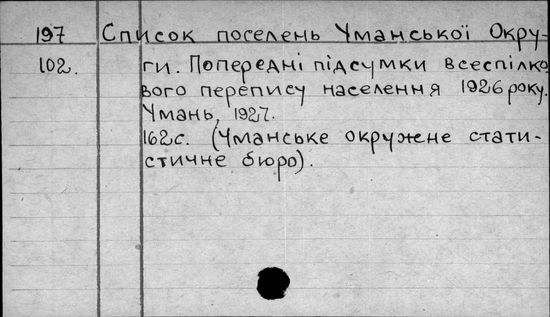 197 Список поселень Уманської Окру-
102. ги. Попередні підсумки всеспілко
вого перепису населення 1926 року.
Умань, 1927.
162с. (Уманське окружене стати-
стичне бюро).